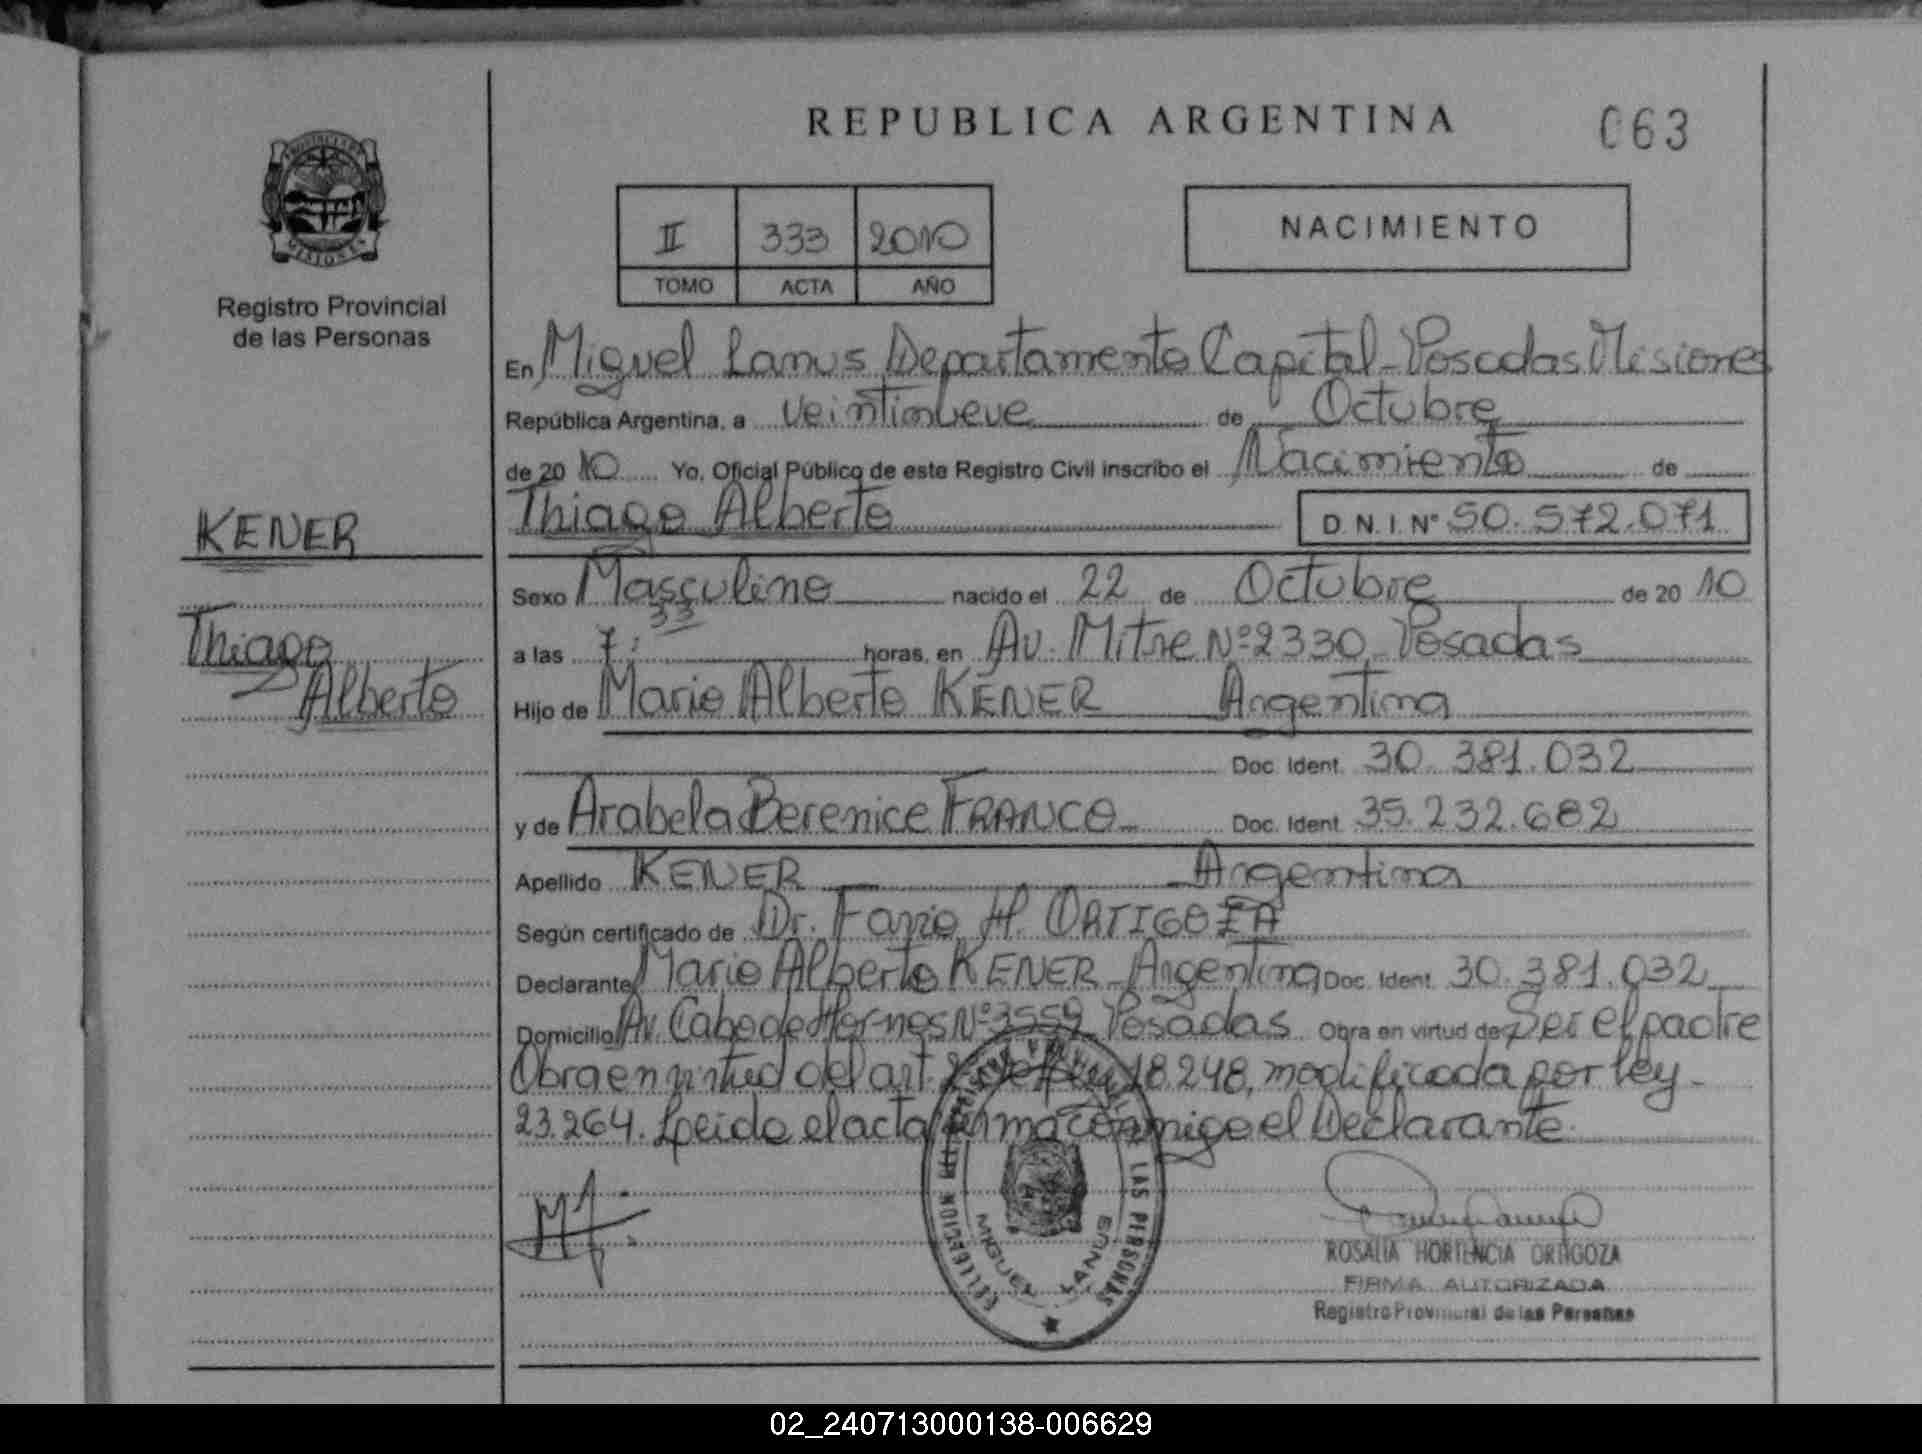 REPUBLICA ARGENTINA
063
PROVINCIA DE
MISIONES
Registro Provincial
de las Personas
II 333 2010
TOMO ACTA AÑO
NACIMIENTO
En Miguel Lanus Departamento Capital - Posadas Misiones
República Argentina, a veintinueve de Octubre
de 2010 Yo, Oficial Público de este Registro Civil inscribo el Nacimiento de
Thiago Alberto D.N.I. N° 50.572.071
KENER
Thiago
Alberto
Sexo Masculino nacido el 22 de Octubre de 2010
a las 7:33 horas, en Av. Mitre Nº 2330 Posadas
Hijo de Mario Alberto KENER Argentina
Doc. Ident. 30.381.032
y de Arabela Berenice FRANCO Doc. Ident. 35.232.682
Apellido KENER Argentina
Según certificado de Dr. H. ORTIGOZA
Declarante Mario Alberto KENER - Argentina Doc. Ident. 30.381.032
Domicilio Av. Cabo de Hornos Nº 3559 Posadas Obra en virtud de Ser el padre
Obra en virtud del art. 2 de ley 18.248, modificada por ley
23.264. Leido el acta firma conmigo el Declarante.
LAS PERSONAS
MIGUEL LANUS
ROSALIA HORTENCIA ORTIGOZA
FIRMA AUTORIZADA
Registro Provincial de las Personas
02_240713000138-006629